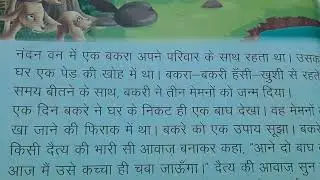 नंदन वन में एक बकरा अपने परिवार के साथ रहता था। उसका
घर एक पेड़ की खोह में था। बकरा-बकरी हँसी-खुशी से रहते
समय बीतने के साथ, बकरी ने तीन मेमनों को जन्म दिया।
एक दिन बकरे ने घर के निकट ही एक बाघ देखा। वह मेमनों को
खा जाने की फिराक में था। बकरे को एक उपाय सूझा। बकरे
किसी दैत्य की भारी सी आवाज बनाकर कहा, "आने दो बाघ को
आज मैं उसे कच्चा ही चबा जाऊँगा।" दैत्य की आवाज सुन